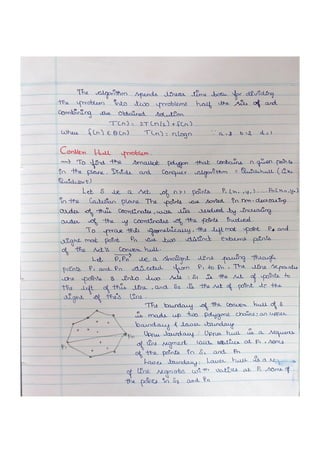 The algorithm spends linear time both for dividing
the problem into two problems half the size of and
combining the obtained solution
T(n) = 2T(n/2) + f(n)
Where f(n) ∈ Θ(n) T(n) = nlogn ∵ a=2 b=2 d=1
Convex Hull problem
→ To find the smallest polygon that contains n given points
in the plane. Divide and Conquer algorithm :
Let S be a set of n>1 points P1(x1,y1)... Pn(xn,yn)
in the Cartesian plane. The points are sorted in non-decreasing
order of their coordinates, with ties resolved by increasing
order of the y coordinates of the points involved.
To prove this geometrically, the left most point P1 and
right most point Pn are two distinct extreme points
of the set's Convex hull.
Let P1Pn be a straight line passing through
points P1 and Pn directed from P1 to Pn. The line separates
the points S into two sets: S1 is the set of points to
the left of this line and S2 is the set of point to the
right of this line.
The boundary of the convex hull of S
is made up two polygons chains: an upper
boundary & lower boundary.
Upper boundary: Upper hull is a sequence
of line segment with vertices at P1, some
of the points in S1 and Pn
Lower boundary: Lower hull is a
of line segments with vertices at P1 some of
the points in S2 and Pn
P1
Pn